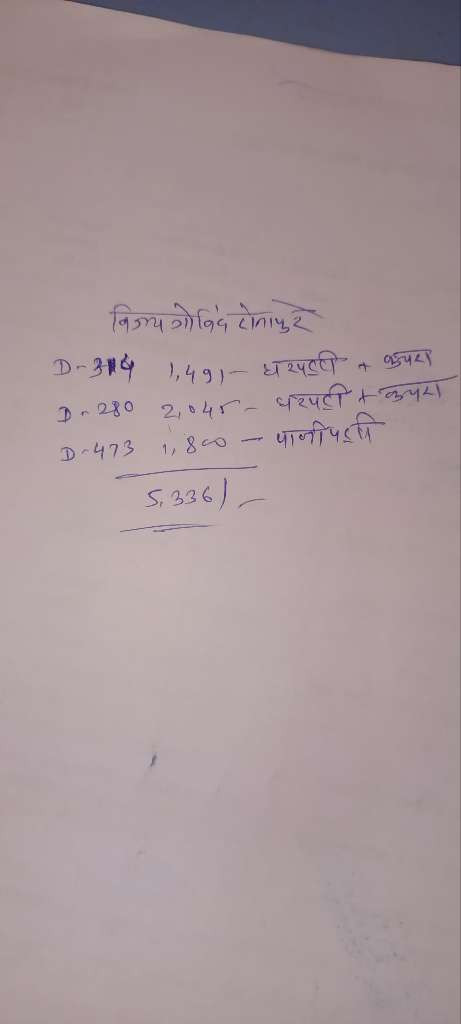 विजय गोविंद टोनापुरे
D-314 1,491- घरपट्टी + कचरा
D-280 2,045- घरपट्टी + कचरा
D-473 1,800 - पाणीपट्टी
5,336/-